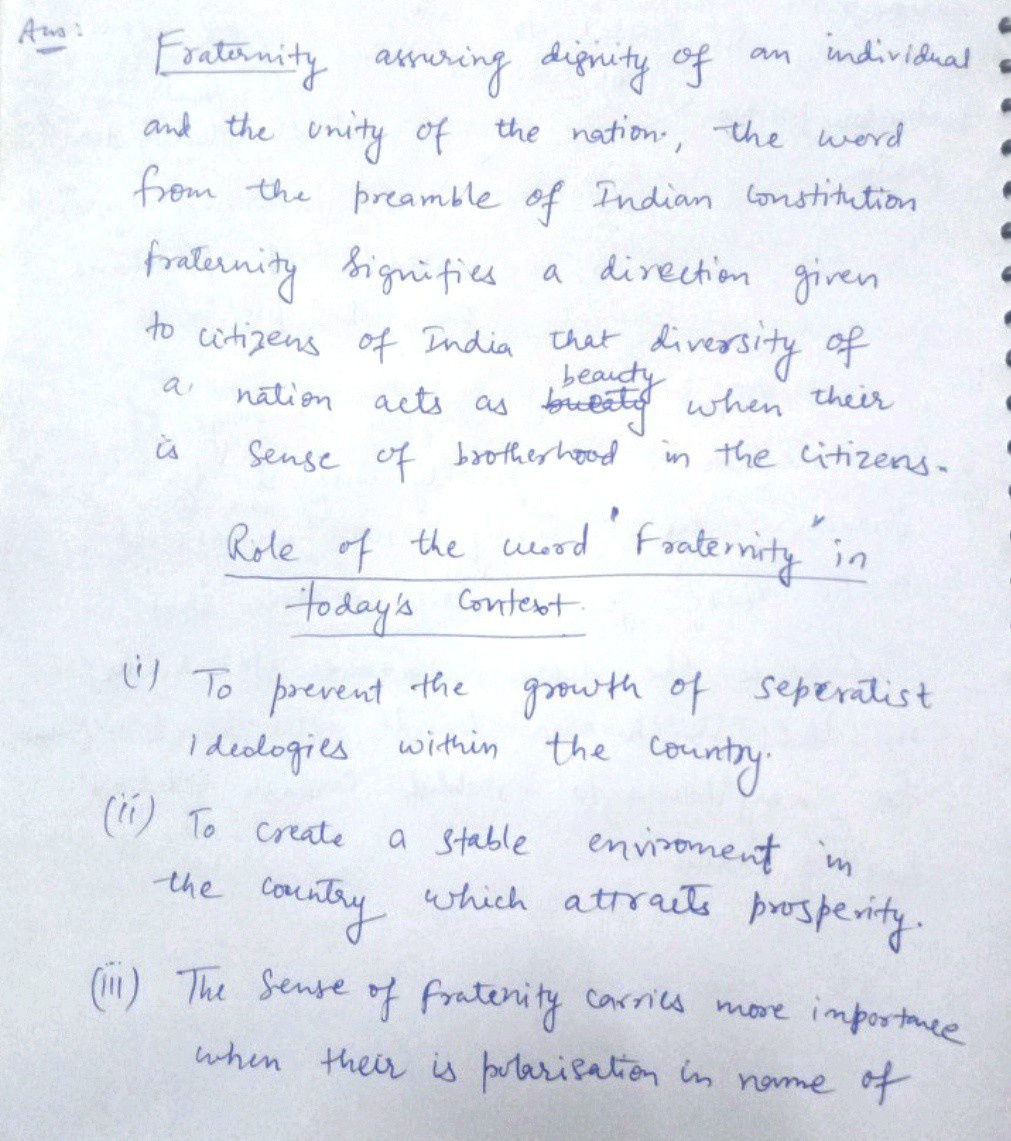 Ans:
Fraternity assuring dignity of an individual
and the unity of the nation, the word
from the preamble of Indian Constitution
fraternity signifies a direction given
to citizens of India that diversity of
beauty
a nation acts as bueaty when their
is sense of brotherhood in the citizens.
Role of the word 'Fraternity' in
today's Context.
(i) To prevent the growth of seperatist
Ideologies within the country.
(ii) To create a stable enviroment in
the country which attracts prosperity.
(iii) The Sense of fratenity carries more importance
when their is polarisation in name of